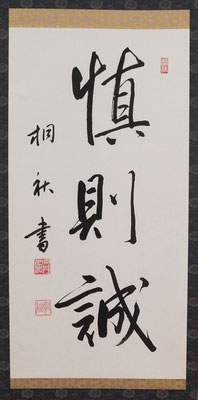 慎則誠
桐秋書